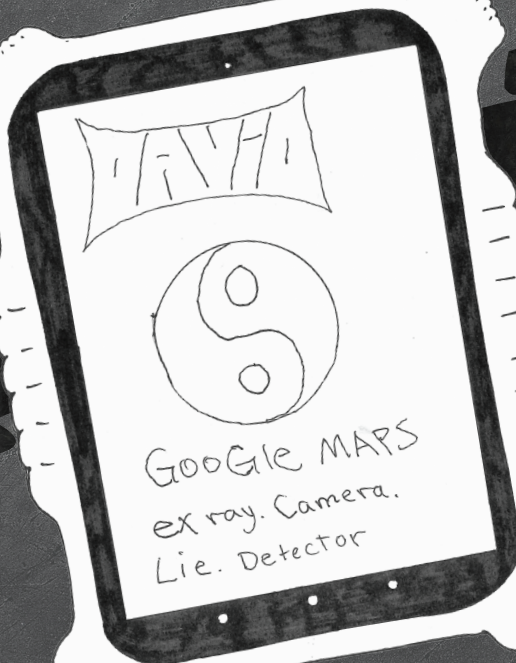 DAViD
GooGle MAPS
ex ray. Camera.
Lie. Detector